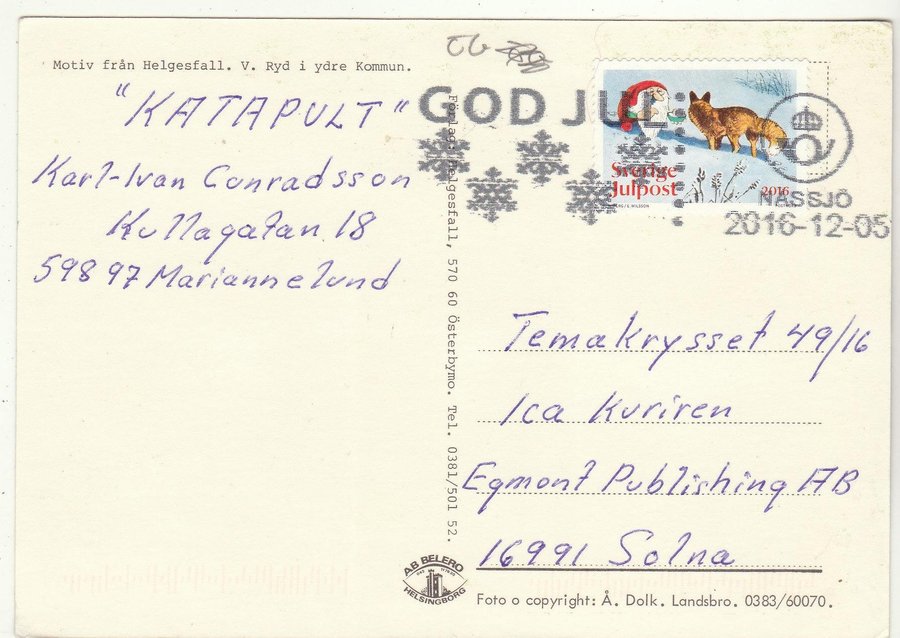 Motiv från Helgesfall. V. Ryd i ydre Kommun.
"KATAPULT"
Karl-Ivan Conradsson
Kullagatan 18
598 97 Mariannelund
GOD JUL
Sverige
Julpost
2016
NÄSSJÖ
2016-12-05
Förlag: Helgesfall, 570 60 Österbymo. Tel. 0381/501 52.
Temakrysset 49/16
Ica Kuriren
Egmont Publishing AB
16991 Solna
AB BELERO
HELSINGBORG
Foto o copyright: Å. Dolk. Landsbro. 0383/60070.